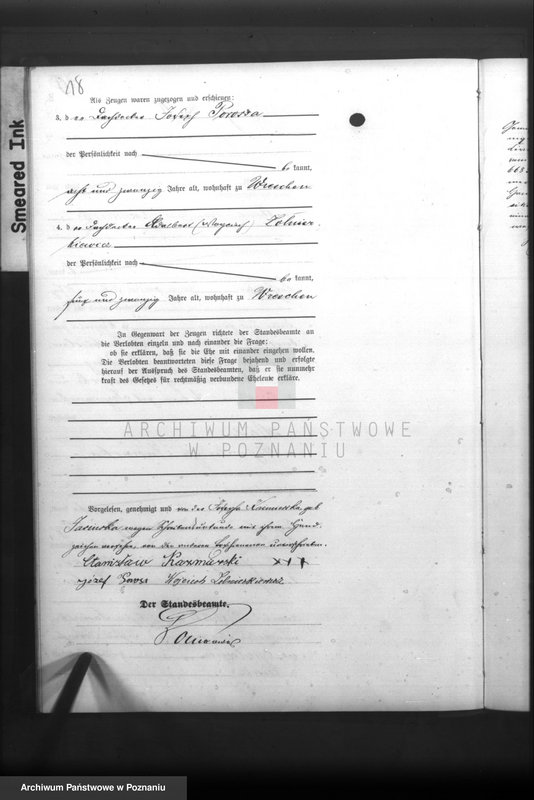 18
Als Zeugen waren zugezogen und erschienen:
3. der Dachdecker Josef
der Persönlichkeit nach
bekannt,
acht und zwanzig Jahre alt, wohnhaft zu Wreschen
4. der Dachdecker Adalbert (Wojciech)
der Persönlichkeit nach
bekannt,
fünf und zwanzig Jahre alt, wohnhaft zu Wreschen
In Gegenwart der Zeugen richtete der Standesbeamte an
die Verlobten einzeln und nach einander die Frage:
ob sie erklären, daß sie die Ehe mit einander eingehen wollen.
Die Verlobten beantworteten diese Frage bejahend und erfolgte
hierauf der Ausspruch des Standesbeamten, daß er sie nunmehr
kraft des Gesetzes für rechtmäßig verbundene Eheleute erkläre.
ARCHIWUM PAŃSTWOWE
W POZNANIU
Vorgelesen, genehmigt und von der Josepha geb
wegen Schreibensunkunde mit ihrem Hand
zeichen versehen, von den anderen Erschienenen unterschrieben.
Stanisław Kazmarski +++
Józef Wojciech
Der Standesbeamte.
Smeared Ink
Archiwum Państwowe w Poznaniu